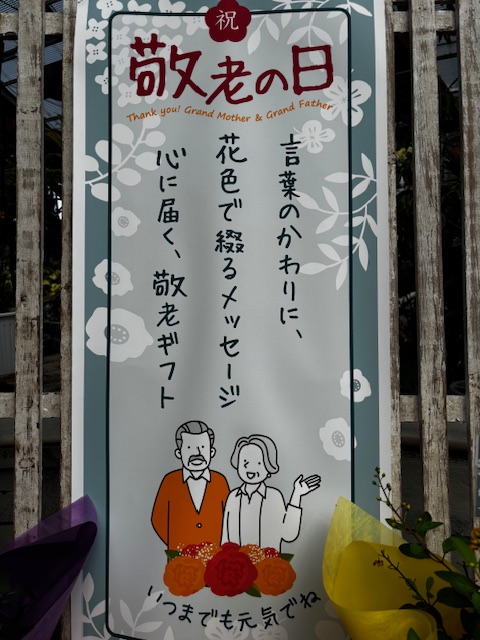 祝
敬老の日
Thank you! Grand Mother & Grand Father
言葉のかわりに、
花色で綴るメッセージ
心に届く、敬老ギフト
いつまでも元気でね